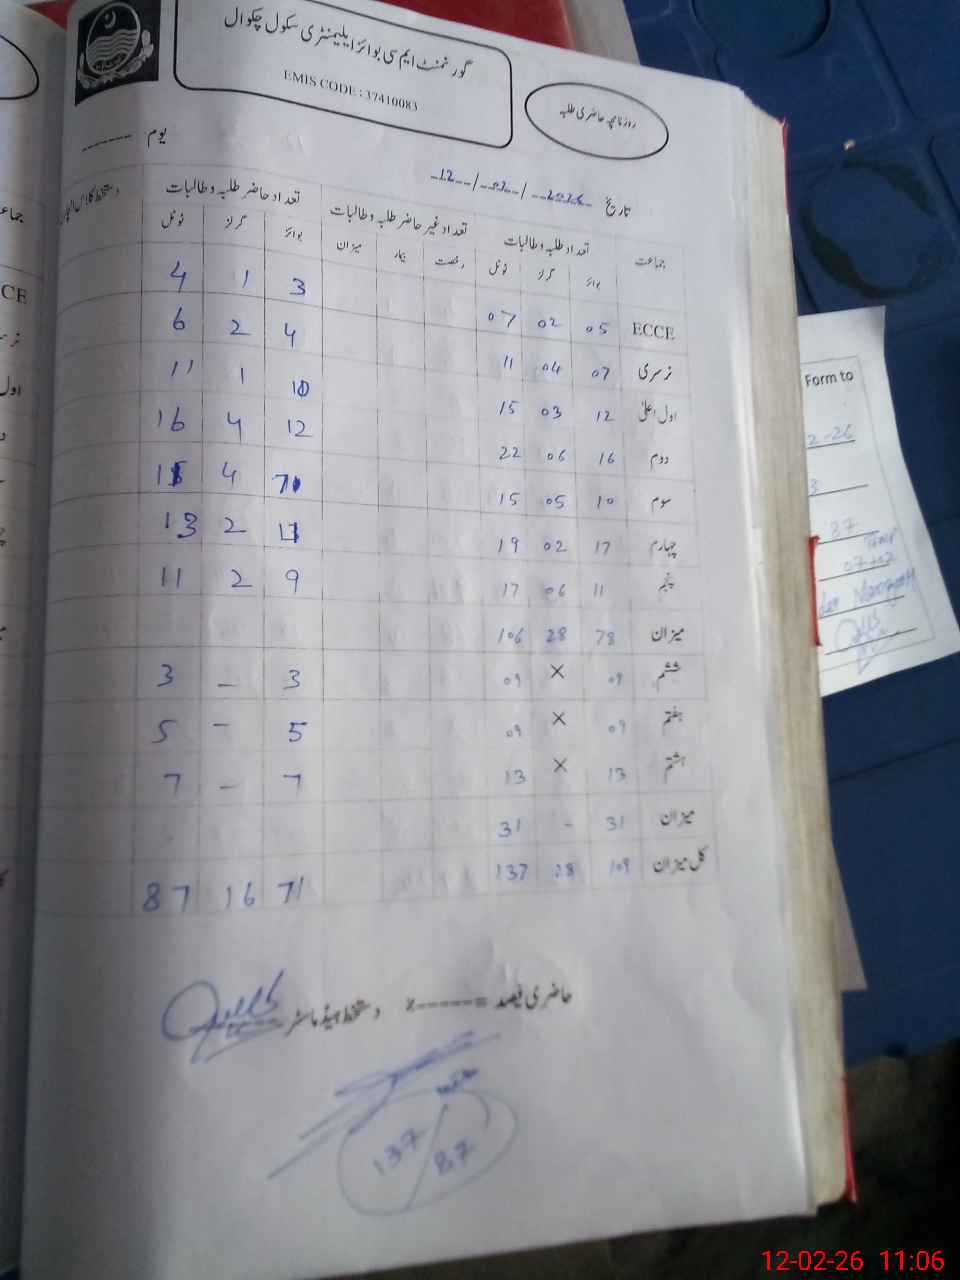 گورنمنٹ ایم سی بوائز ایلیمنٹری سکول چکوال
EMIS CODE : 37410083
روزنامچہ حاضری طلبہ
یوم ------
تاریخ 2026 / 02 / 12
جماعت تعداد طلبہ و طالبات تعداد غیر حاضر طلبہ و طالبات تعداد حاضر طلبہ و طالبات دستخط کلاس
بوائز گرلز ٹوٹل رخصت بیمار میزان بوائز گرلز ٹوٹل
ECCE 05 02 07 3 1 4
نرسری 07 04 11 4 2 6
اول اعلیٰ 12 03 15 10 1 11
دوم 16 06 22 12 4 16
سوم 10 05 15 4
چہارم 17 02 19 11 2 13
پنجم 11 06 17 9 2 11
میزان 78 28 106
ششم 09 × 09 3 – 3
ہفتم 09 × 09 5 – 5
ہشتم 13 × 13 7 – 7
میزان 31 - 31
کل میزان 109 28 137 71 16 87
حاضری فیصد =-----٪ دستخط ہیڈ ماسٹر
137/87
CE
اول
Form to
2-26
3
37
07+02
12-02-26 11:06